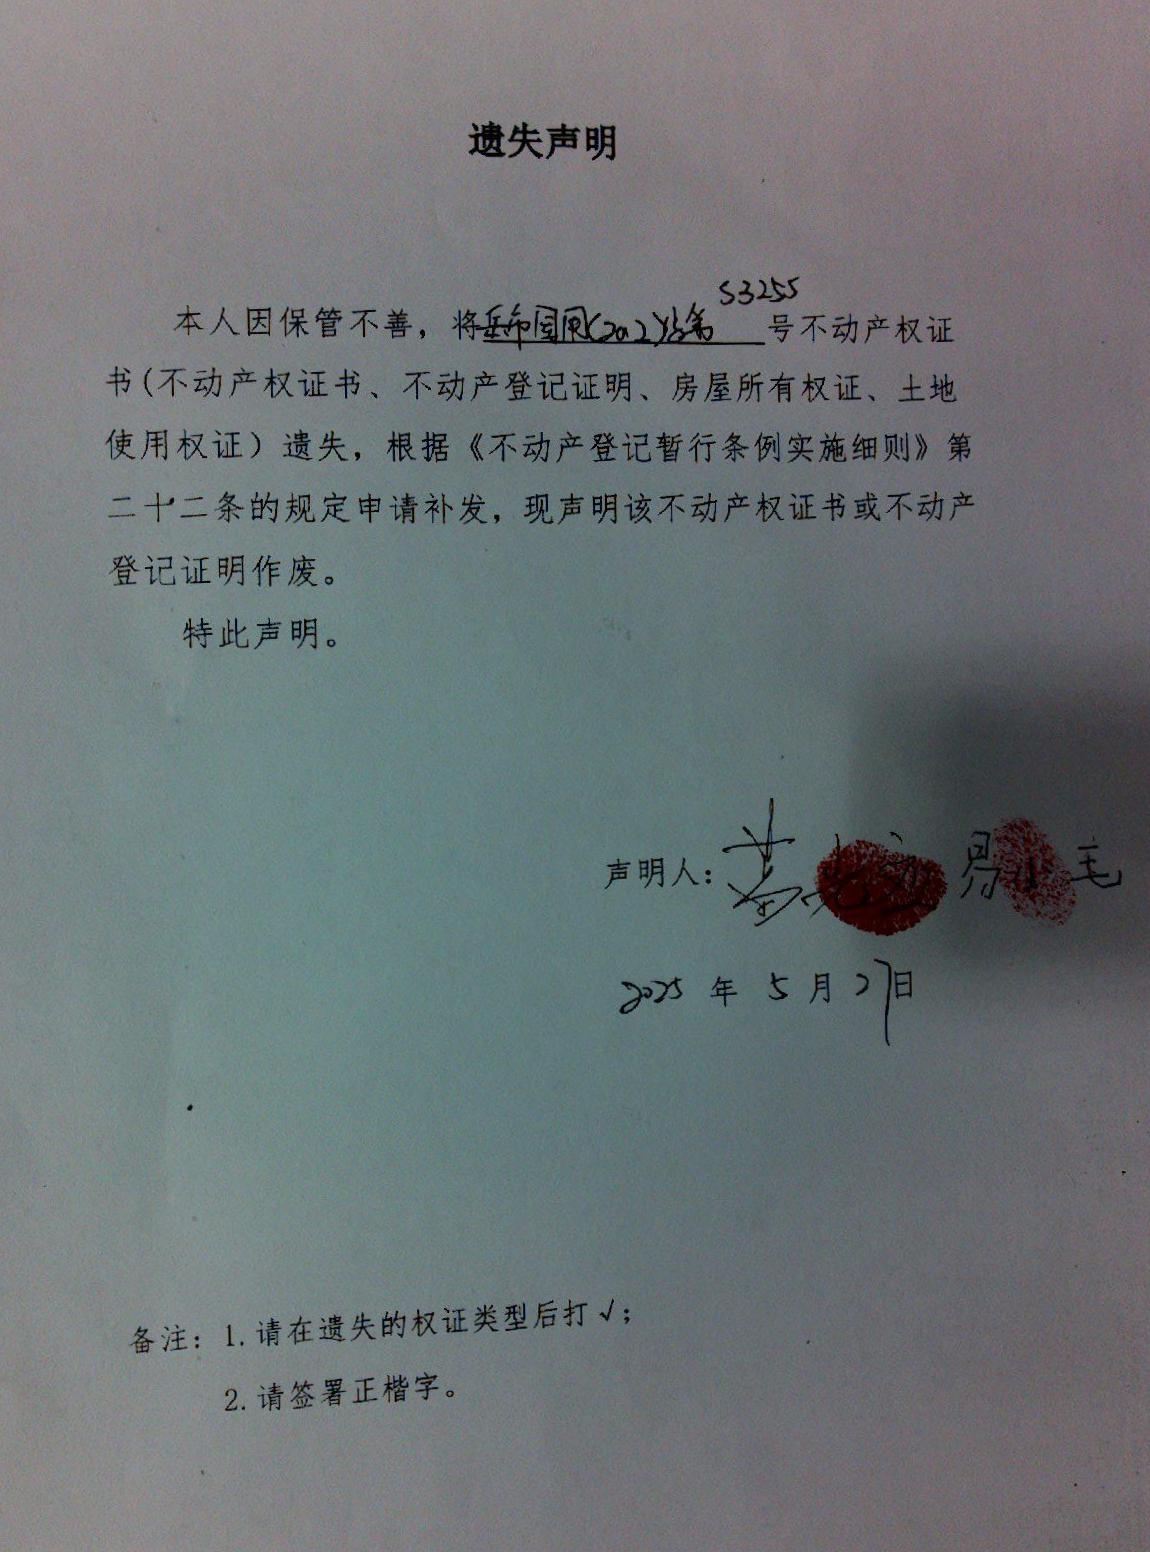 遗失声明
本人因保管不善，将岳市国用(2012)第S3255号不动产权证
书(不动产权证书、不动产登记证明、房屋所有权证、土地
使用权证）遗失，根据《不动产登记暂行条例实施细则》第
二十二条的规定申请补发，现声明该不动产权证书或不动产
登记证明作废。
特此声明。
声明人：黄 易小毛
2025 年 5 月 27日
备注：1.请在遗失的权证类型后打√；
2.请签署正楷字。